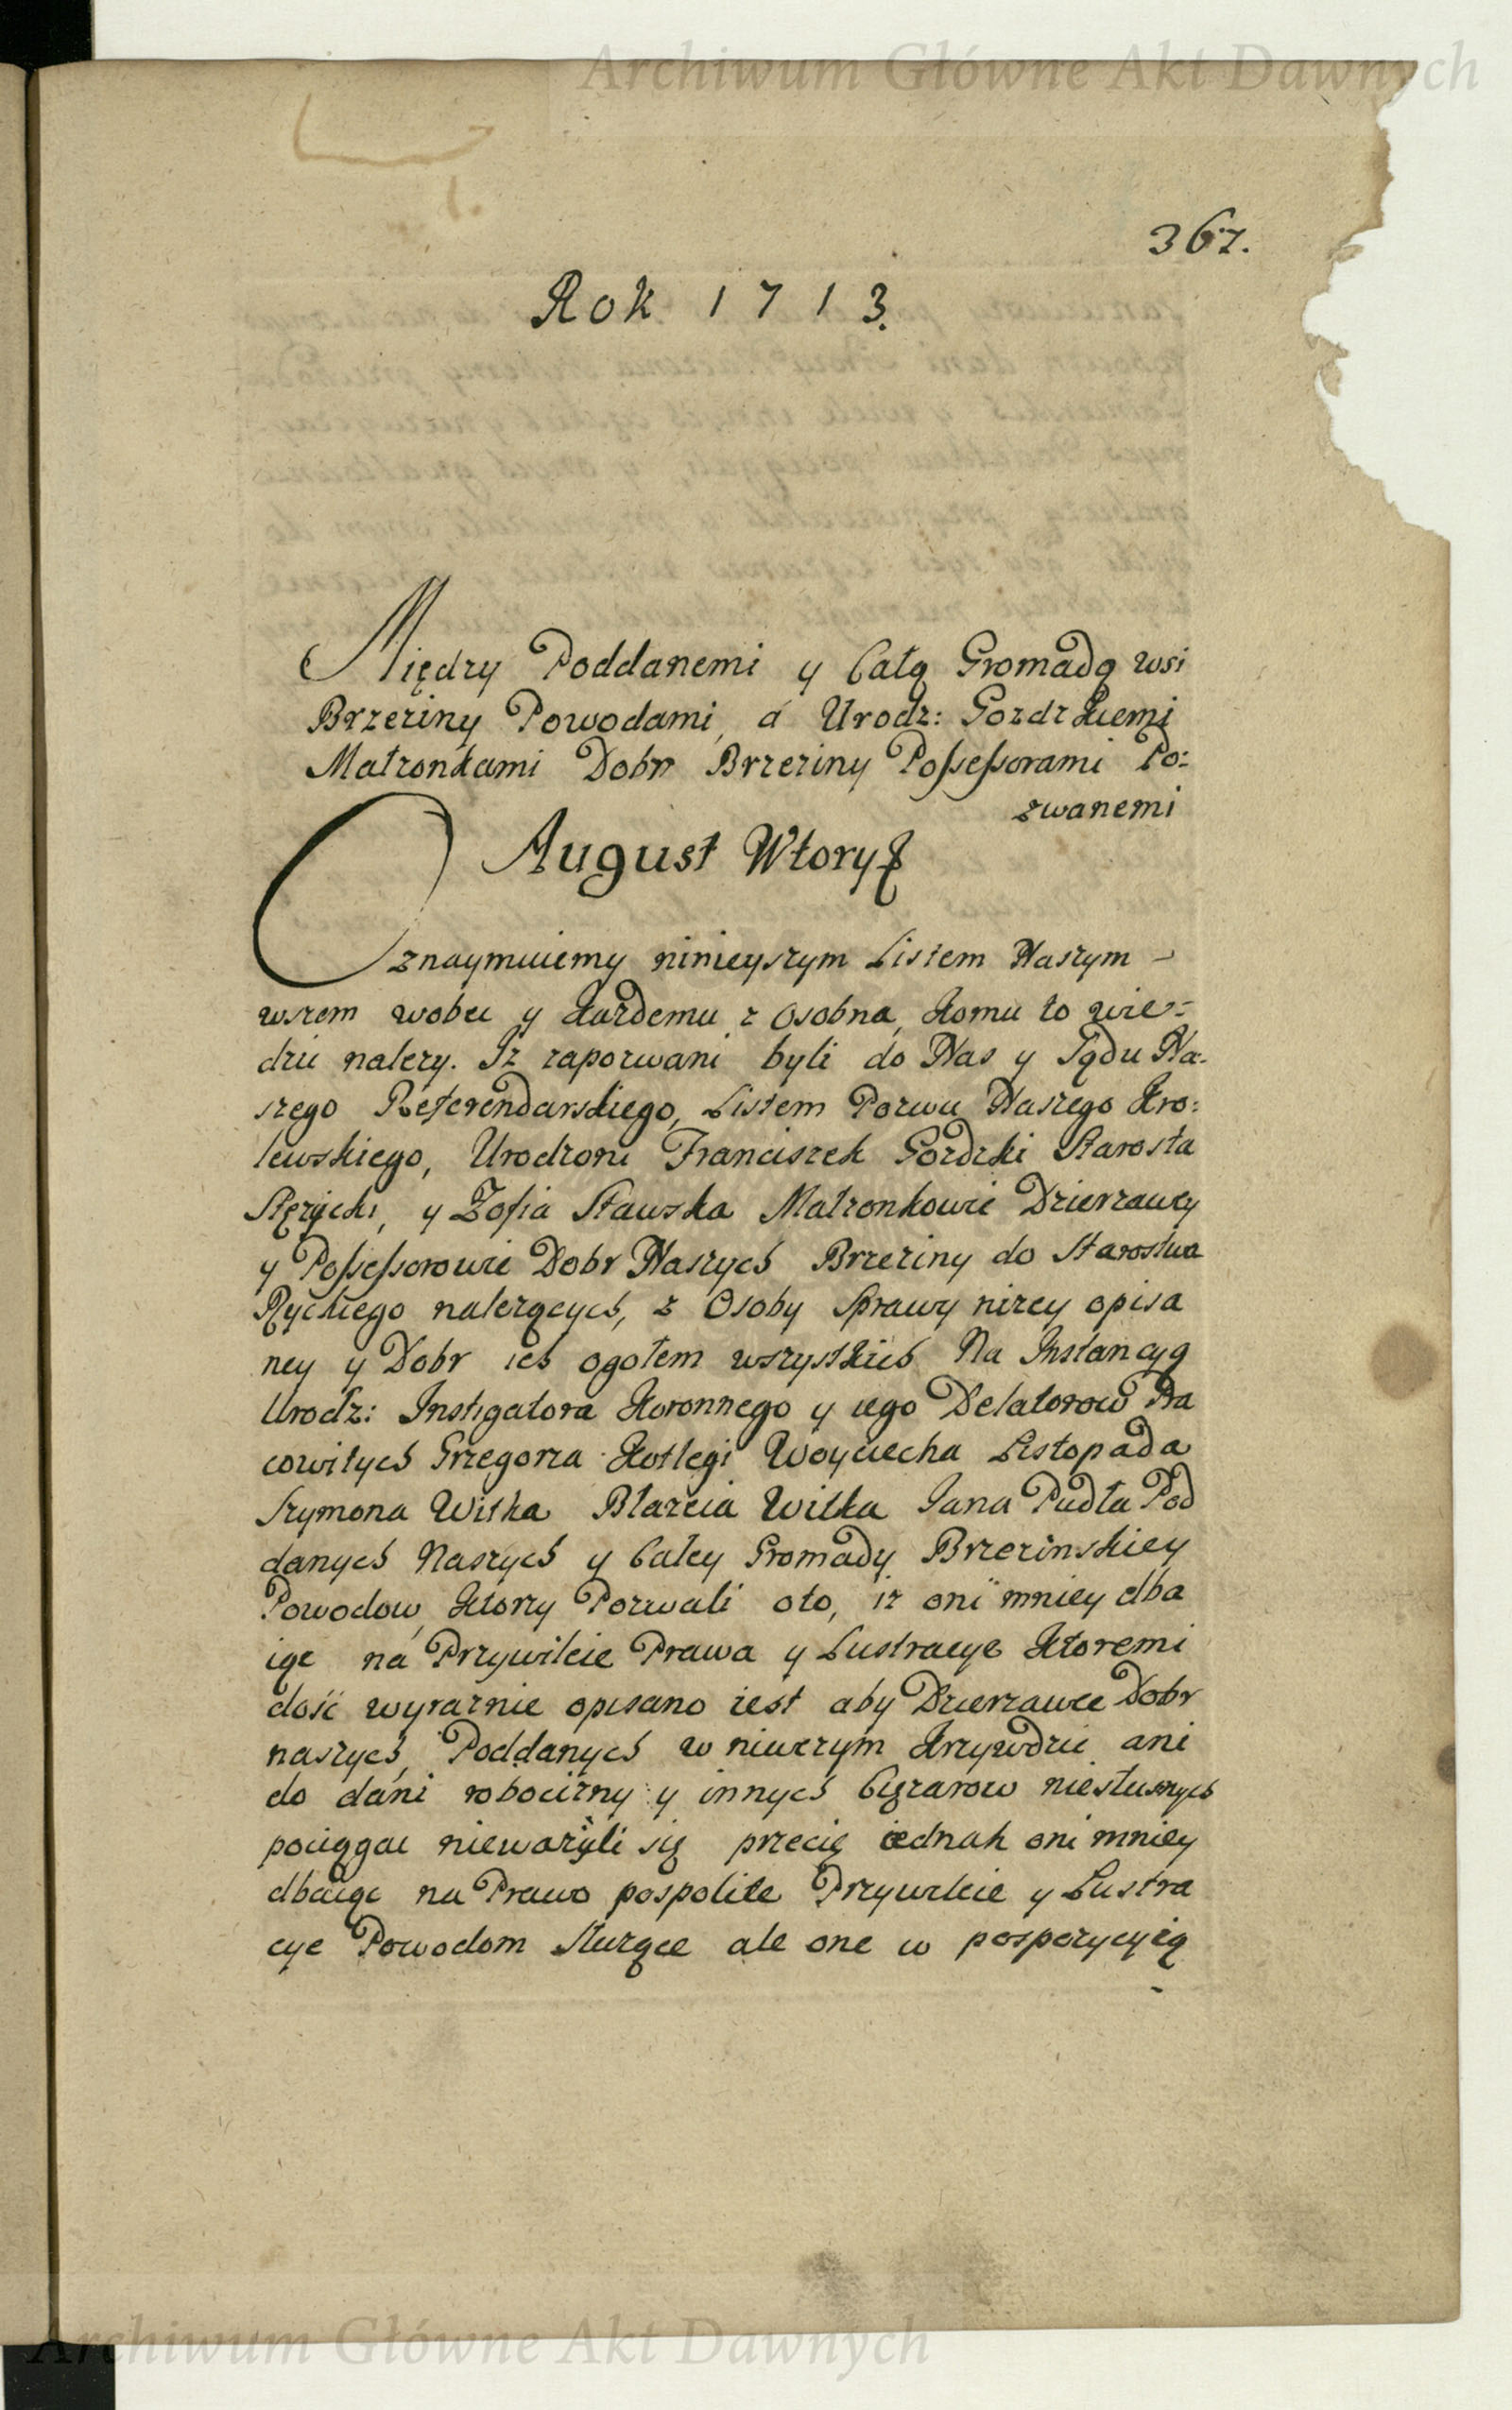 Archiwum Główne Akt Dawnych
367.
Rok 1713.
Między Poddanemi y Całą Gromadą wsi
Brzeziny Powodami, á Urodz: Gozdzkiemi
Małzonkami Dobr Brzeziny Possessorami Po:
zwanemi
August Wtory
Oznaymuiemy ninieyszym Listem Naszym
wszem wobec y każdemu z osobna, komu to wie:
dzic nalezy. Iz zapozwani byli do Nas y Sądu Na:
szego Referendarskiego, Listem Pozwu Naszego Kro:
lewskiego, Urodzoni Franciszek Gozdzki Starosta
Stęzycki, y Zofia Stawska Małzonkowie Dzierzawcy
y Possessorowie Dobr Naszych Brzeziny do Starostwa
Ryckiego nalezących, z Osoby Sprawy nizey opisa
ney y Dobr ich ogołem wszystkich Na Instancyą
Urodz: Instigatora Koronnego y iego Delatorow Pra
cowitych Grzegorza Kotlegi Woyciecha Listopada
Szymona Witka Błazeia Witka Jana Pudła Pod
danych Naszych y Całey Gromady Brzezinskiey
Powodow, ktorzy Pozwali oto, iz oni mniey dba
iąc ná Przywileie Prawa y Lustracye ktoremi
dość wyraznie opisano iest aby Dzierzawce Dobr
naszych, Poddanych w niwczym krzywdzic ani
do dani robocizny y innych Cięzarow niesłusznych
pociągac niewazyli się przecię iednak oni mniey
dbaiąc na Prawo pospolite Przywileie y Lustra
cye Powodom słuzące ale one w pospozycyią
Archiwum Główne Akt Dawnych